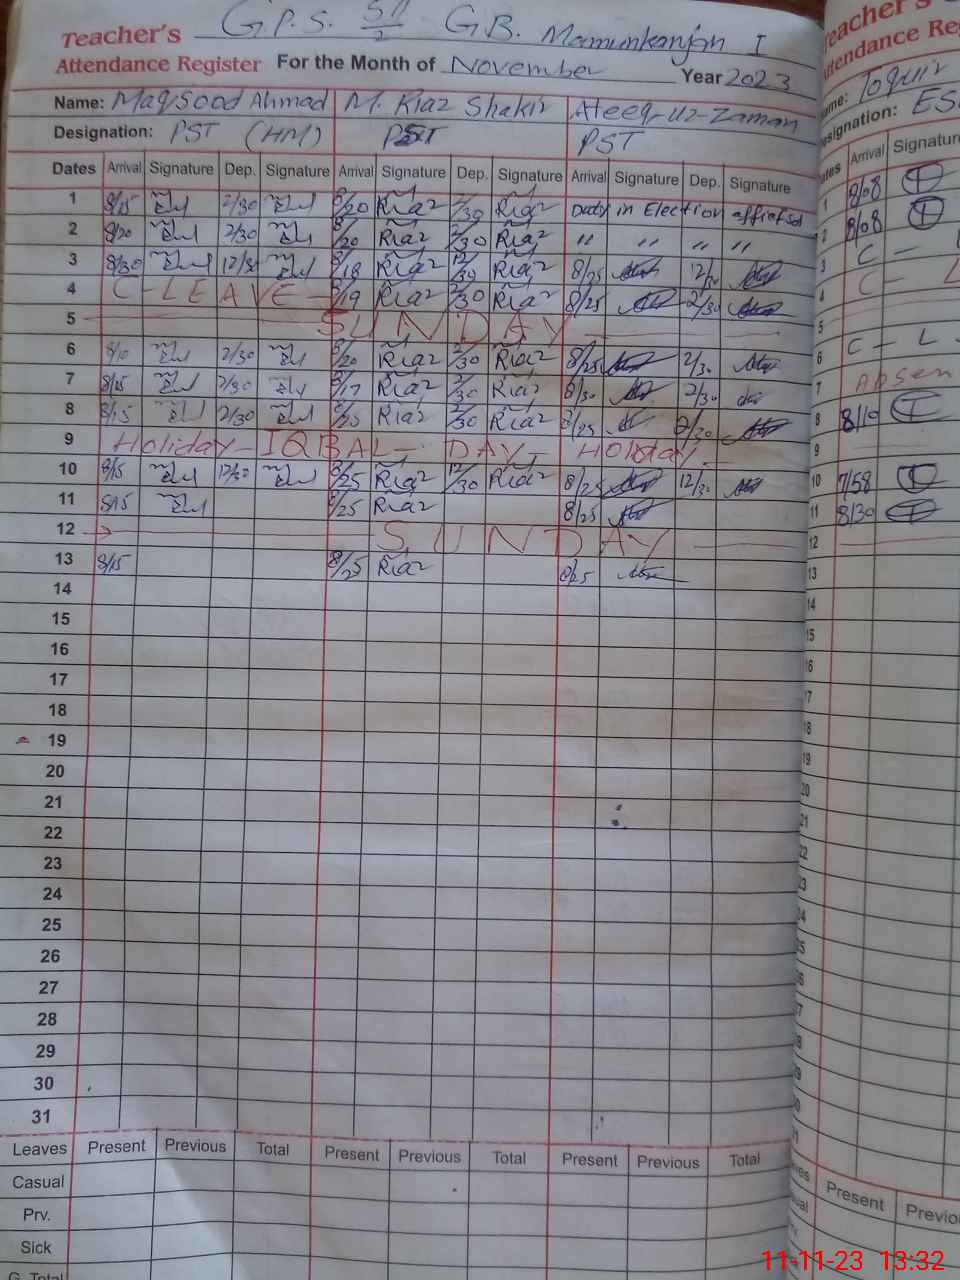 Teacher's G.P.S. 511/2 GB. Mamunkanjan I
Attendance Register For the Month of November Year 2023
Name: Maqsood Ahmad M. Riaz Shakir Ateeq-uz-Zaman
Designation: PST (HM) PST PST
Dates Arrival Signature Dep. Signature Arrival Signature Dep. Signature Arrival Signature Dep. Signature
1 8/15 2/30 8/20 Riaz 2/30 Riaz Duty in Election
2 8/20 2/30 8/20 Riaz 2/30 Riaz " " " "
3 8/30 12/30 8/18 Riaz 12/30 Riaz 8/25 12/30
4 C-LEAVE- 8/19 Riaz 2/30 Riaz 8/25 2/30
5 SUNDAY
6 8/10 2/30 8/20 Riaz 2/30 Riaz 8/25 2/30
7 8/15 2/30 8/17 Riaz 2/30 Riaz 8/30 2/30
8 8/15 2/30 8/25 Riaz 2/30 Riaz 8/25 2/30
9 Holiday - IQBAL - DAY - Holiday.
10 8/15 12/30 8/25 Riaz 12/30 Riaz 8/25 12/30
11 8/15 8/25 Riaz 8/25
12 SUNDAY
13 8/15 8/25 Riaz 8/25
14
15
16
17
18
19
20
21
22
23
24
25
26
27
28
29
30
31
Leaves Present Previous Total Present Previous Total Present Previous Total
Casual
Prv.
Sick
G. Total
Teacher's
Attendance Re
Toquir
ESignation: ES
Arrival Signature
1 8/08
2 8/08
3 C -
4 C - L
5
6 C - L
7 Absen
8 8/10
9
10 7/58
11 8/30
12
13
14
15
16
17
18
19
20
21
22
23
Present Previo
11-11-23 13:32